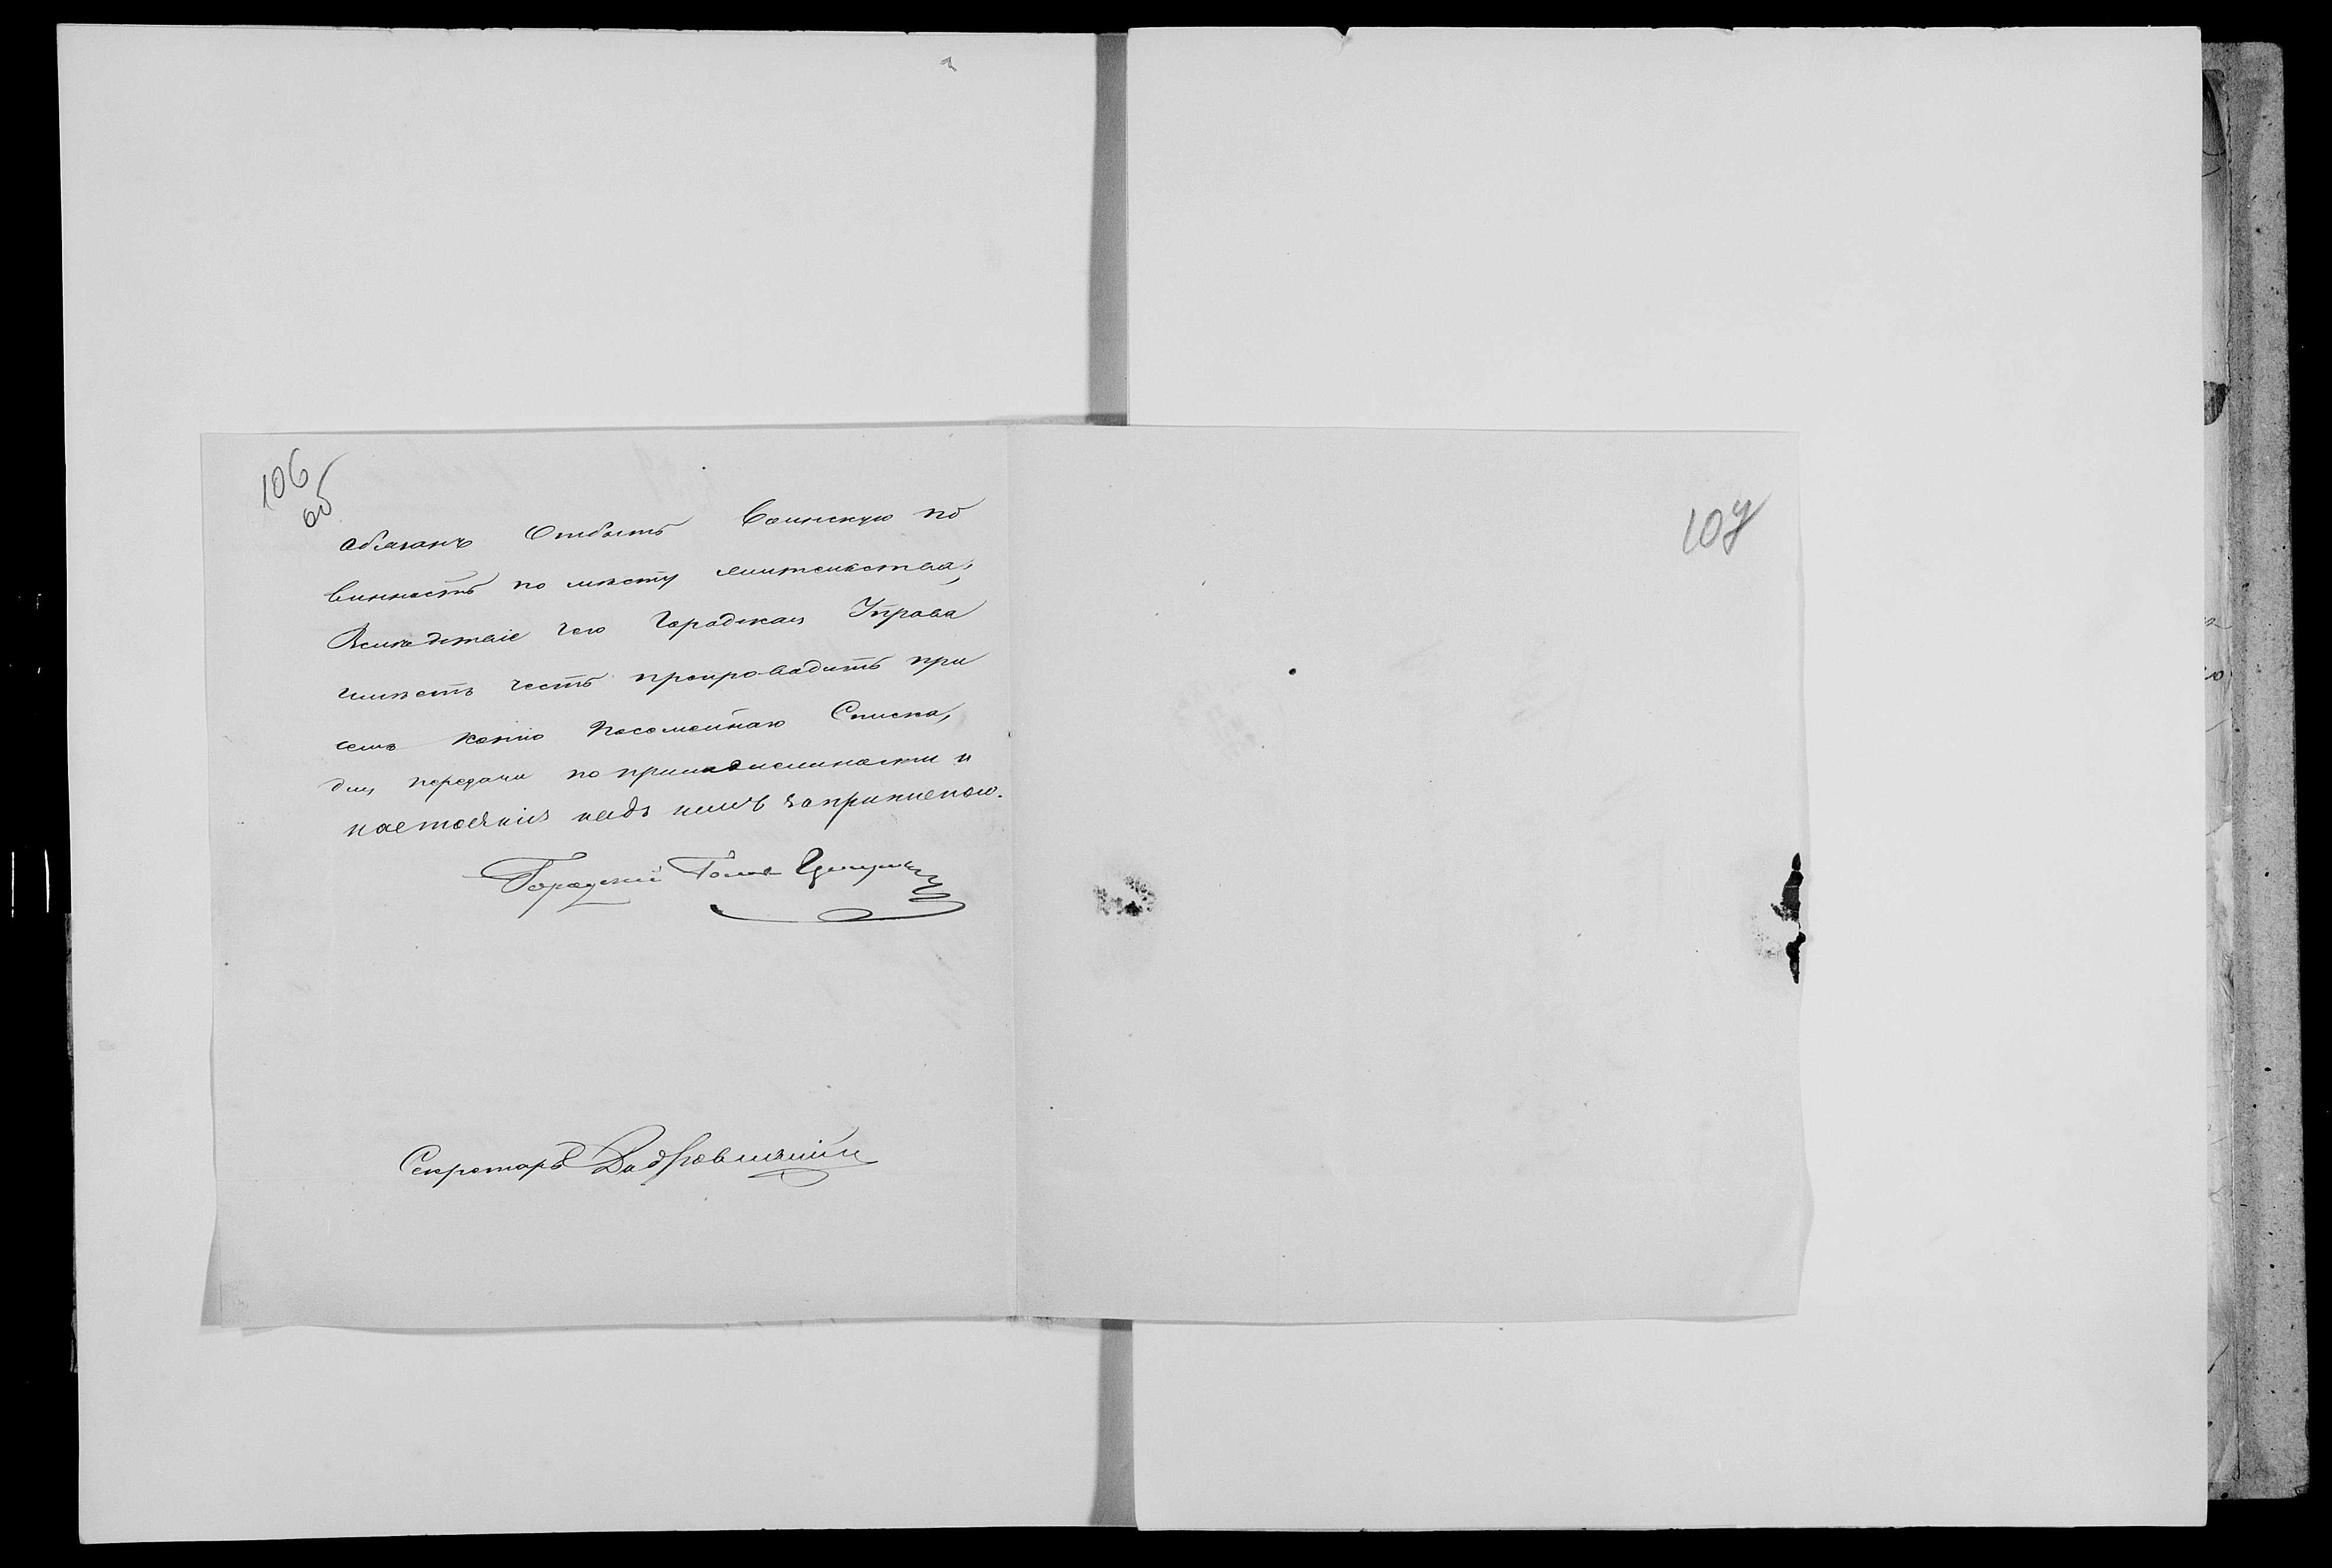 106
об
обязанъ Отбыть Воинскую по
винность по мѣсту жительства;
Вслѣдствіе чего Городская Управа
имѣетъ честь препроводить при
семъ копію посемейнаго Списка,
для передачи по принадлежности и
настоянія надъ нимъ
Городской Голова
Секретарь
107